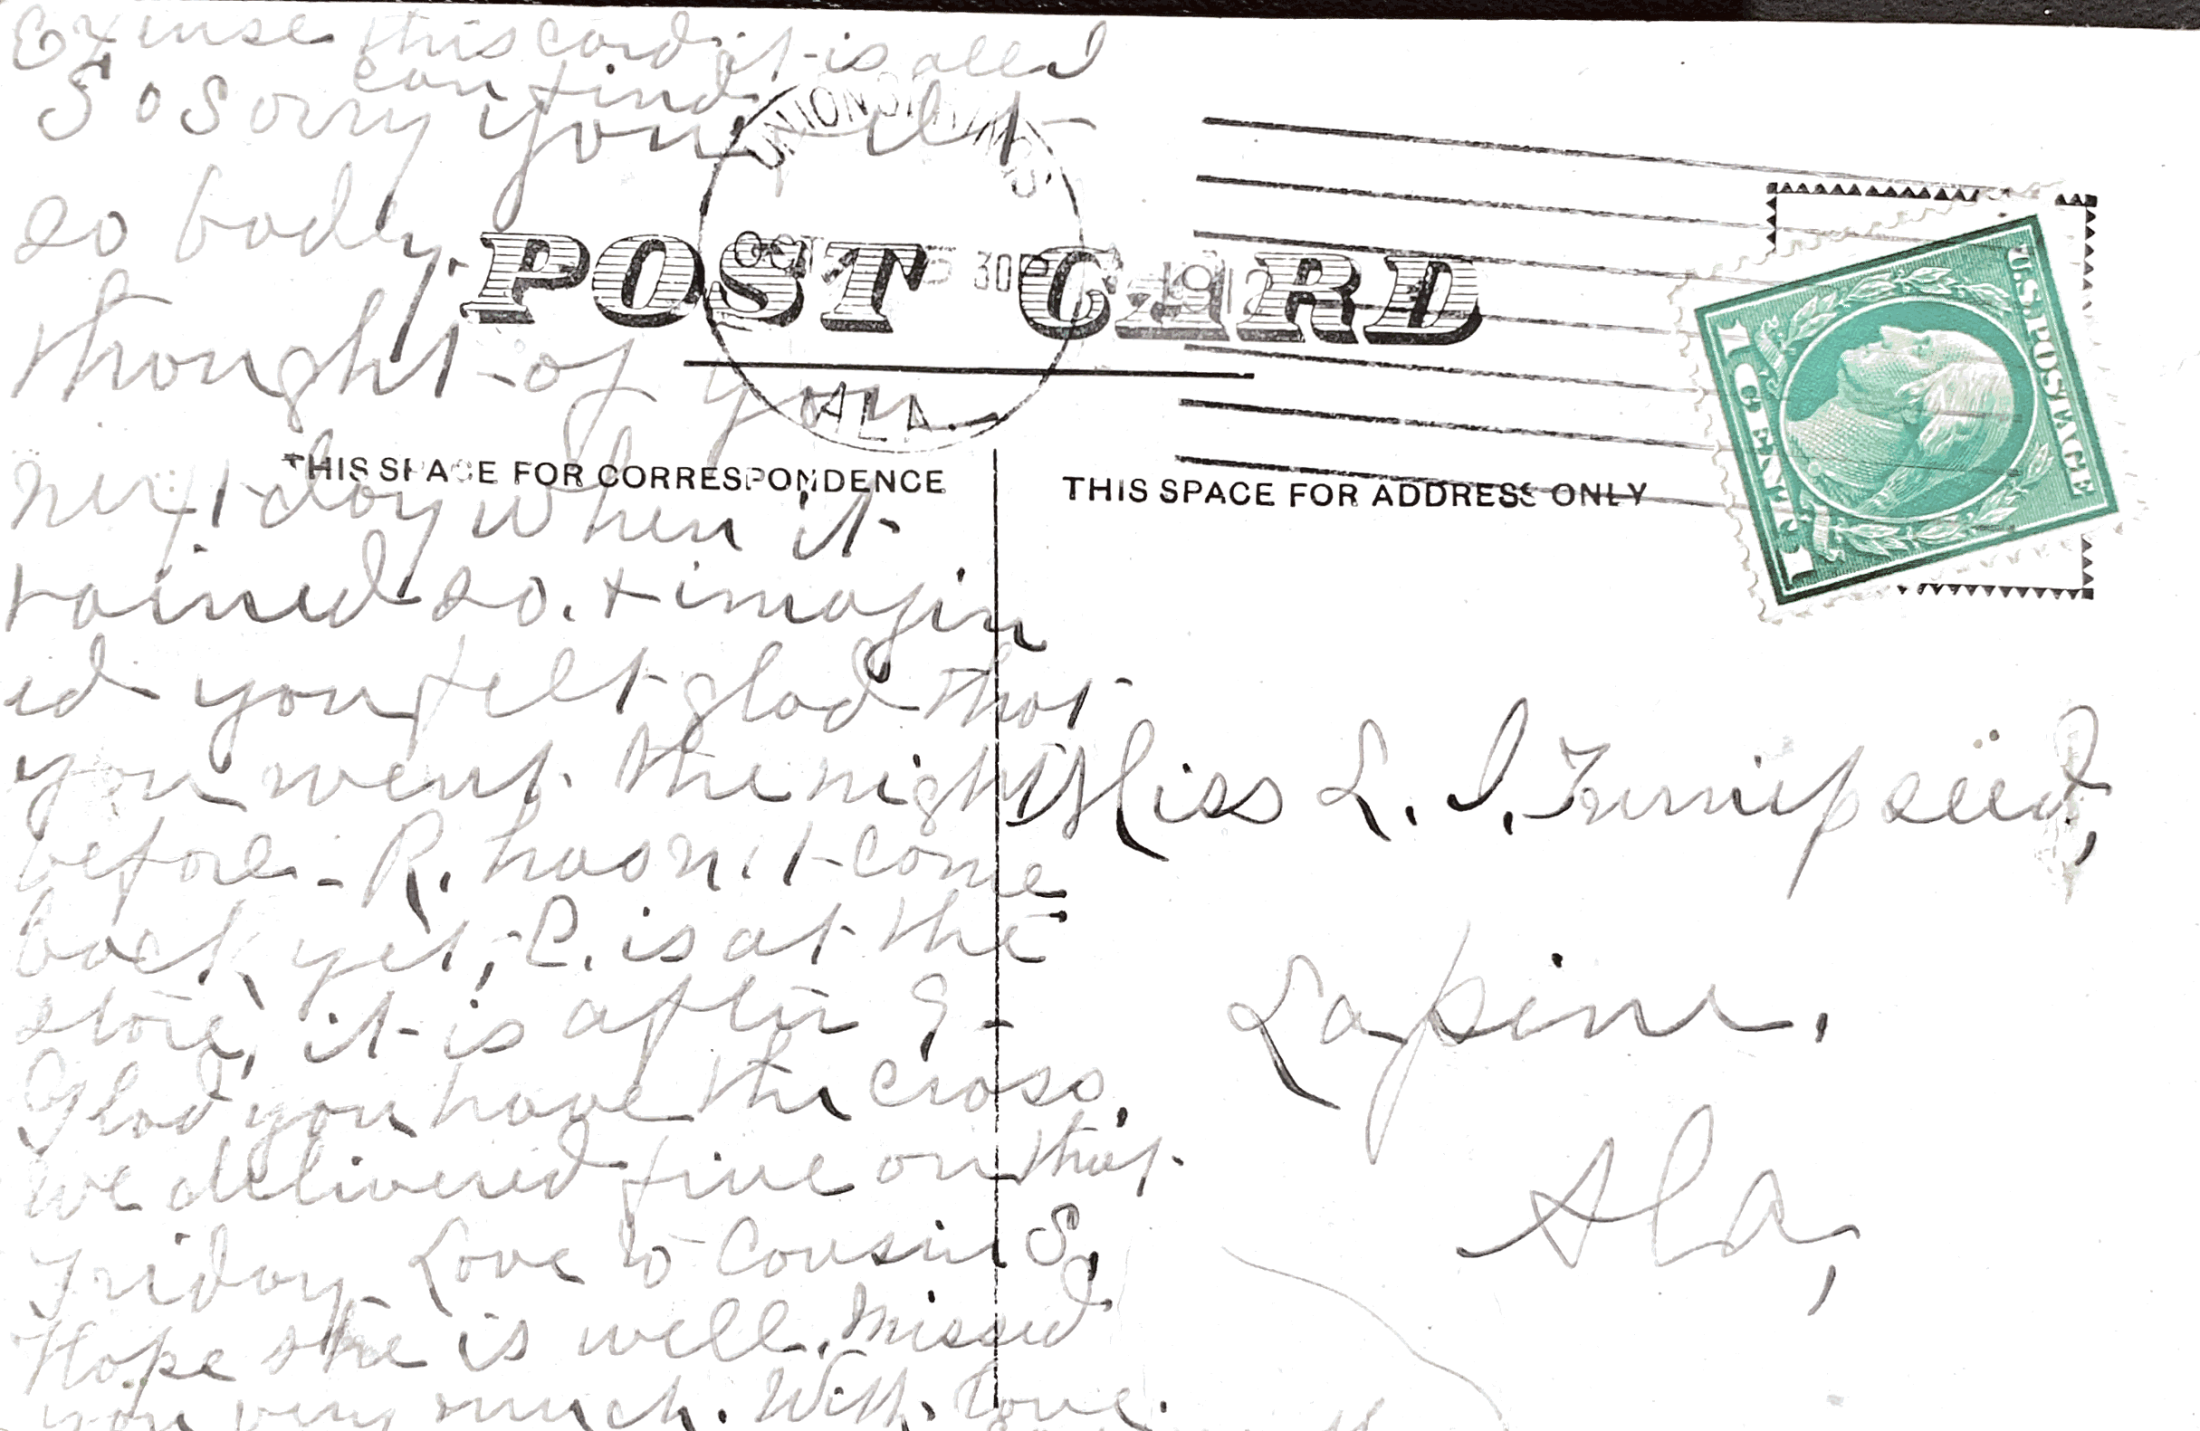 Excuse this card, it is all I
can find
So sorry you felt
so badly.
thought of you
next day when it
rained so. & imagin
ed you felt glad that
you went the night
before - R. hasn't come
back yet, C. is at the
store, it is after 9 -
Glad you have the cross,
We delivered fine on that
Friday. Love to Cousin S,
Hope she is well. Missed
you very much. With love.
UNION SPRINGS
OCT
5 30 P
1912
ALA.
POST CARD
THIS SPACE FOR CORRESPONDENCE
THIS SPACE FOR ADDRESS ONLY
U.S. POSTAGE
1 CENT 1
Miss L. I. Turnipseed,
Lapine.
Ala,